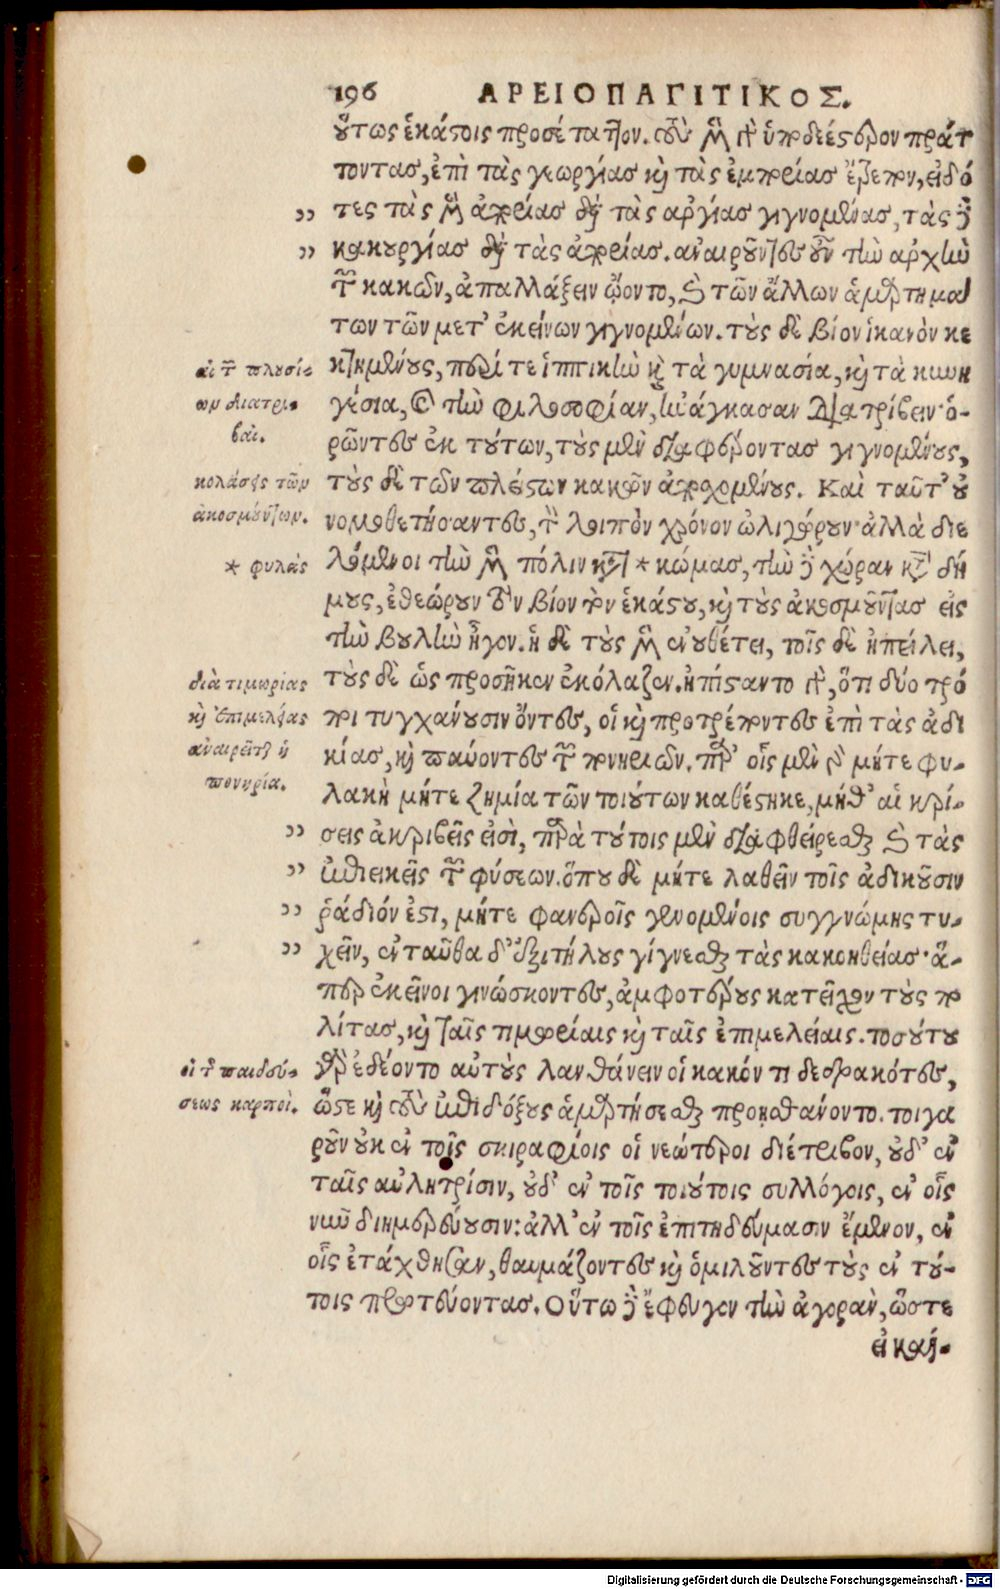 196 ΑΡΕΙΟΠΑΓΙΤΙΚΟΣ.
οὕτως ἑκάστοις προσέταττον. τοὺς μὲν γὰρ ὑποδεέστερον πράτ
τοντας, ἐπὶ τὰς γεωργίας καὶ τὰς ἐμπορίας ἔτρεπον, εἰδό
„ τες τὰς μὲν ἀπορίας διὰ τὰς ἀργίας γιγνομένας, τὰς δὲ
„ κακουργίας διὰ τὰς ἀπορίας. ἀναιροῦντες οὖν τὴν ἀρχὴν
τῶν κακῶν, ἀπαλλάξειν ᾤοντο, καὶ τῶν ἄλλων ἁμαρτημά
των τῶν μετ' ἐκείνων γιγνομένων. τοὺς δὲ βίον ἱκανὸν κε
κτημένους, περί τε ἱππικὴν καὶ τὰ γυμνασία, καὶ τὰ κυνη
γέσια, καὶ τὴν φιλοσοφίαν, ἠνάγκασαν διατρίβειν· ὁ-
ρῶντες ἐκ τούτων, τοὺς μὲν διαφέροντας γιγνομένους,
τοὺς δὲ τῶν πλείστων κακῶν ἀπεχομένους. Καὶ ταῦτ' οὐ
νομοθετήσαντες, τὸν λοιπὸν χρόνον ὠλιγώρουν· ἀλλὰ διε
λόμενοι τὴν μὲν πόλιν κατὰ * κώμας, τὴν δὲ χώραν κατὰ δή
μους, ἐθεώρουν τὸν βίον τὸν ἑκάστου, καὶ τοὺς ἀκοσμοῦντας εἰς
τὴν βουλὴν ἦγον. ἡ δὲ τοὺς μὲν ἐνουθέτει, τοῖς δὲ ἠπείλει,
τοὺς δὲ ὡς προσῆκεν ἐκόλαζεν. ἠπίσταντο γὰρ, ὅτι δύο τρό
ποι τυγχάνουσιν ὄντες, οἱ καὶ προτρέποντες ἐπὶ τὰς ἀδι
κίας, καὶ παύοντες τῶν πονηριῶν. παρ' οἷς μὲν γὰρ μήτε φυ-
λακὴ μήτε ζημία τῶν τοιούτων καθέστηκε, μήθ' αἱ κρί-
„ σεις ἀκριβεῖς εἰσὶ, παρὰ τούτοις μὲν διαφθείρεσθαι καὶ τὰς
„ ἐπιεικεῖς τῶν φύσεων. ὅπου δὲ μήτε λαθεῖν τοῖς ἀδικοῦσιν
„ ῥᾴδιόν ἐστι, μήτε φανεροῖς γενομένοις συγγνώμης τυ-
„ χεῖν, ἐνταῦθα δ' ἐξιτήλους γίγνεσθαι τὰς κακοηθείας· ἅ-
περ ἐκεῖνοι γινώσκοντες, ἀμφοτέρους κατεῖχον τοὺς πο
λίτας, καὶ ταῖς τιμωρίαις καὶ ταῖς ἐπιμελείαις. τοσούτου
γὰρ ἐδέοντο αὐτοὺς λανθάνειν οἱ κακόν τι δεδρακότες,
ὥστε καὶ τοὺς ἐπιδόξους ἁμαρτήσεσθαι προῃσθάνοντο. τοιγα
ροῦν οὐκ ἐν τοῖς σκιραφίοις οἱ νεώτεροι διέτριβον, οὐδ' ἐν
ταῖς αὐλητρίσιν, οὐδ' ἐν τοῖς τοιούτοις συλλόγοις, ἐν οἷς
νῦν διημερεύουσιν: ἀλλ' ἐν τοῖς ἐπιτηδεύμασιν ἔμενον, ἐν
οἷς ἐτάχθησαν, θαυμάζοντες καὶ ὁμιλοῦντες τοὺς ἐν τού-
τοις πρωτεύοντας. Οὕτω δὲ ἔφευγον τὴν ἀγορὰν, ὥστε
εἰ καί-
αἱ τῶν πλουσί-
ων διατρι-
βαί.
κολάσεις τῶν
ἀκοσμούντων.
* φυλὰς
διὰ τιμωρίας
καὶ ἐπιμελείας
ἀναιρεῖται ἡ
πονηρία.
οἱ τῆς παιδεύ-
σεως καρποί.
Digitalisierung gefördert durch die Deutsche Forschungsgemeinschaft - DFG